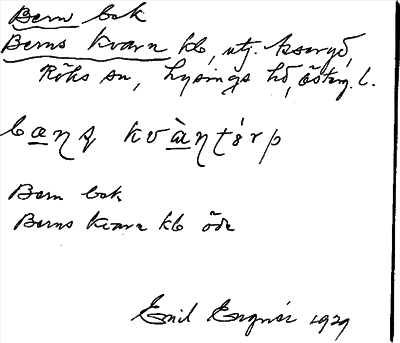 Bern bok
Berns kvarn kb, utj. ksergd,
Röks sn, Lysings hd, Österg. l.
bæŋs kvàɳtərp
Bern bok
Berns kvarn kb öde
Emil 1929